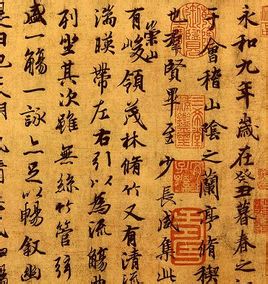 永和九年歲在癸丑暮春之
于會稽山陰之蘭亭脩禊
也羣賢畢至少長咸集此
有崇山峻領茂林脩竹又有清流
湍暎帶左右引以為流觴曲
列坐其次雖無絲竹管弦
盛一觴一詠亦足以暢敘幽
是日也天朗氣清惠風